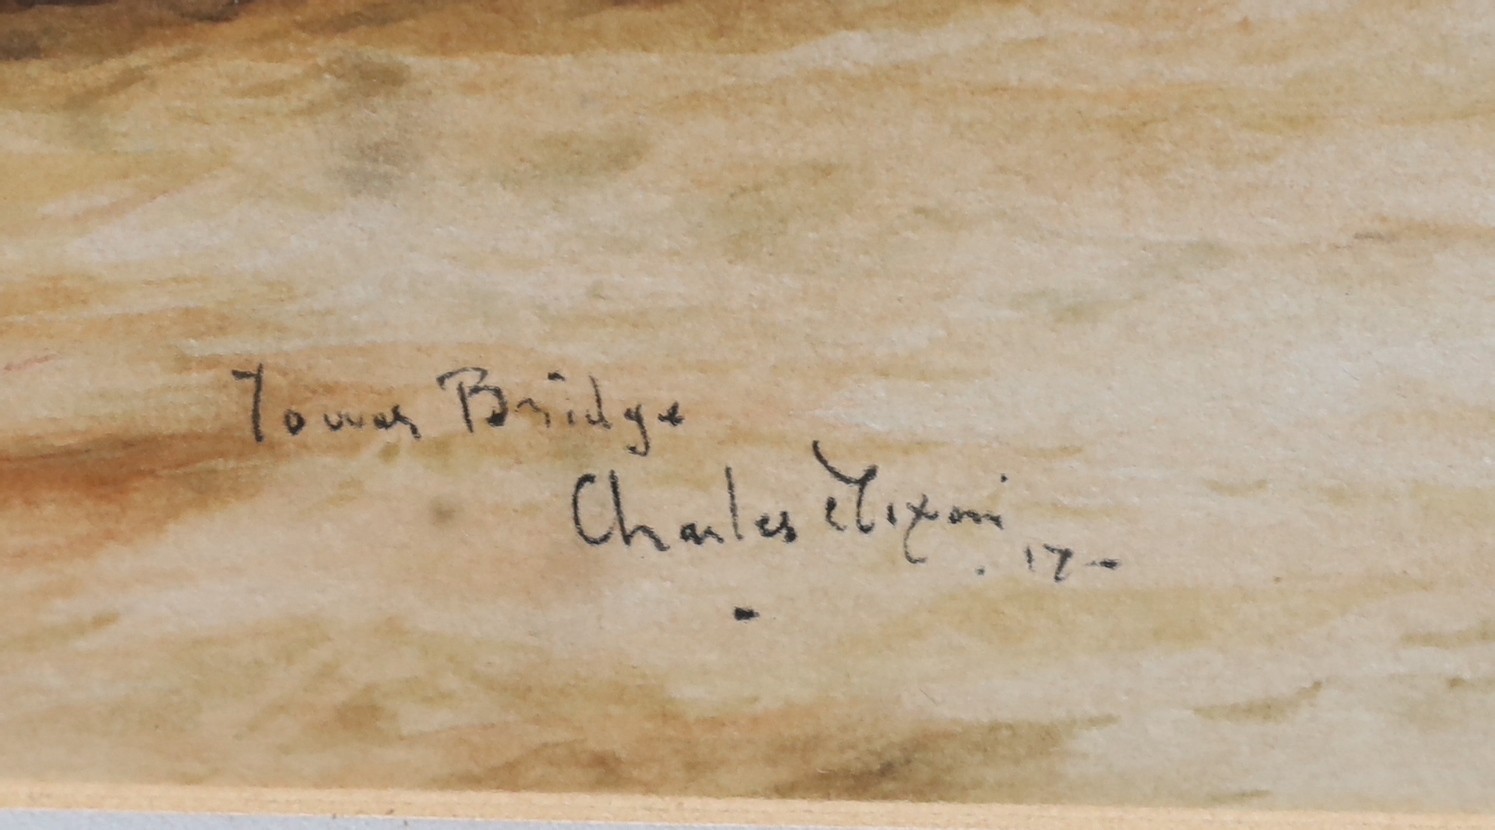 Tower Bridge
Charles Dixon
. 17 -